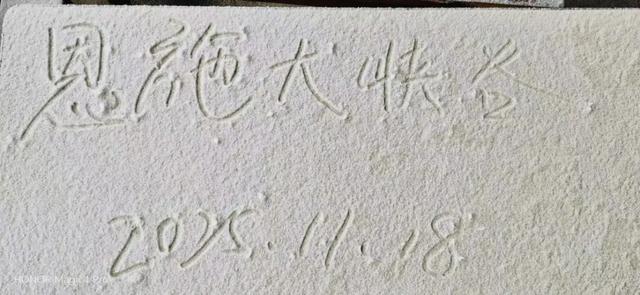 恩施大峡谷
2025.11.18
HONOR Magic4 Pro